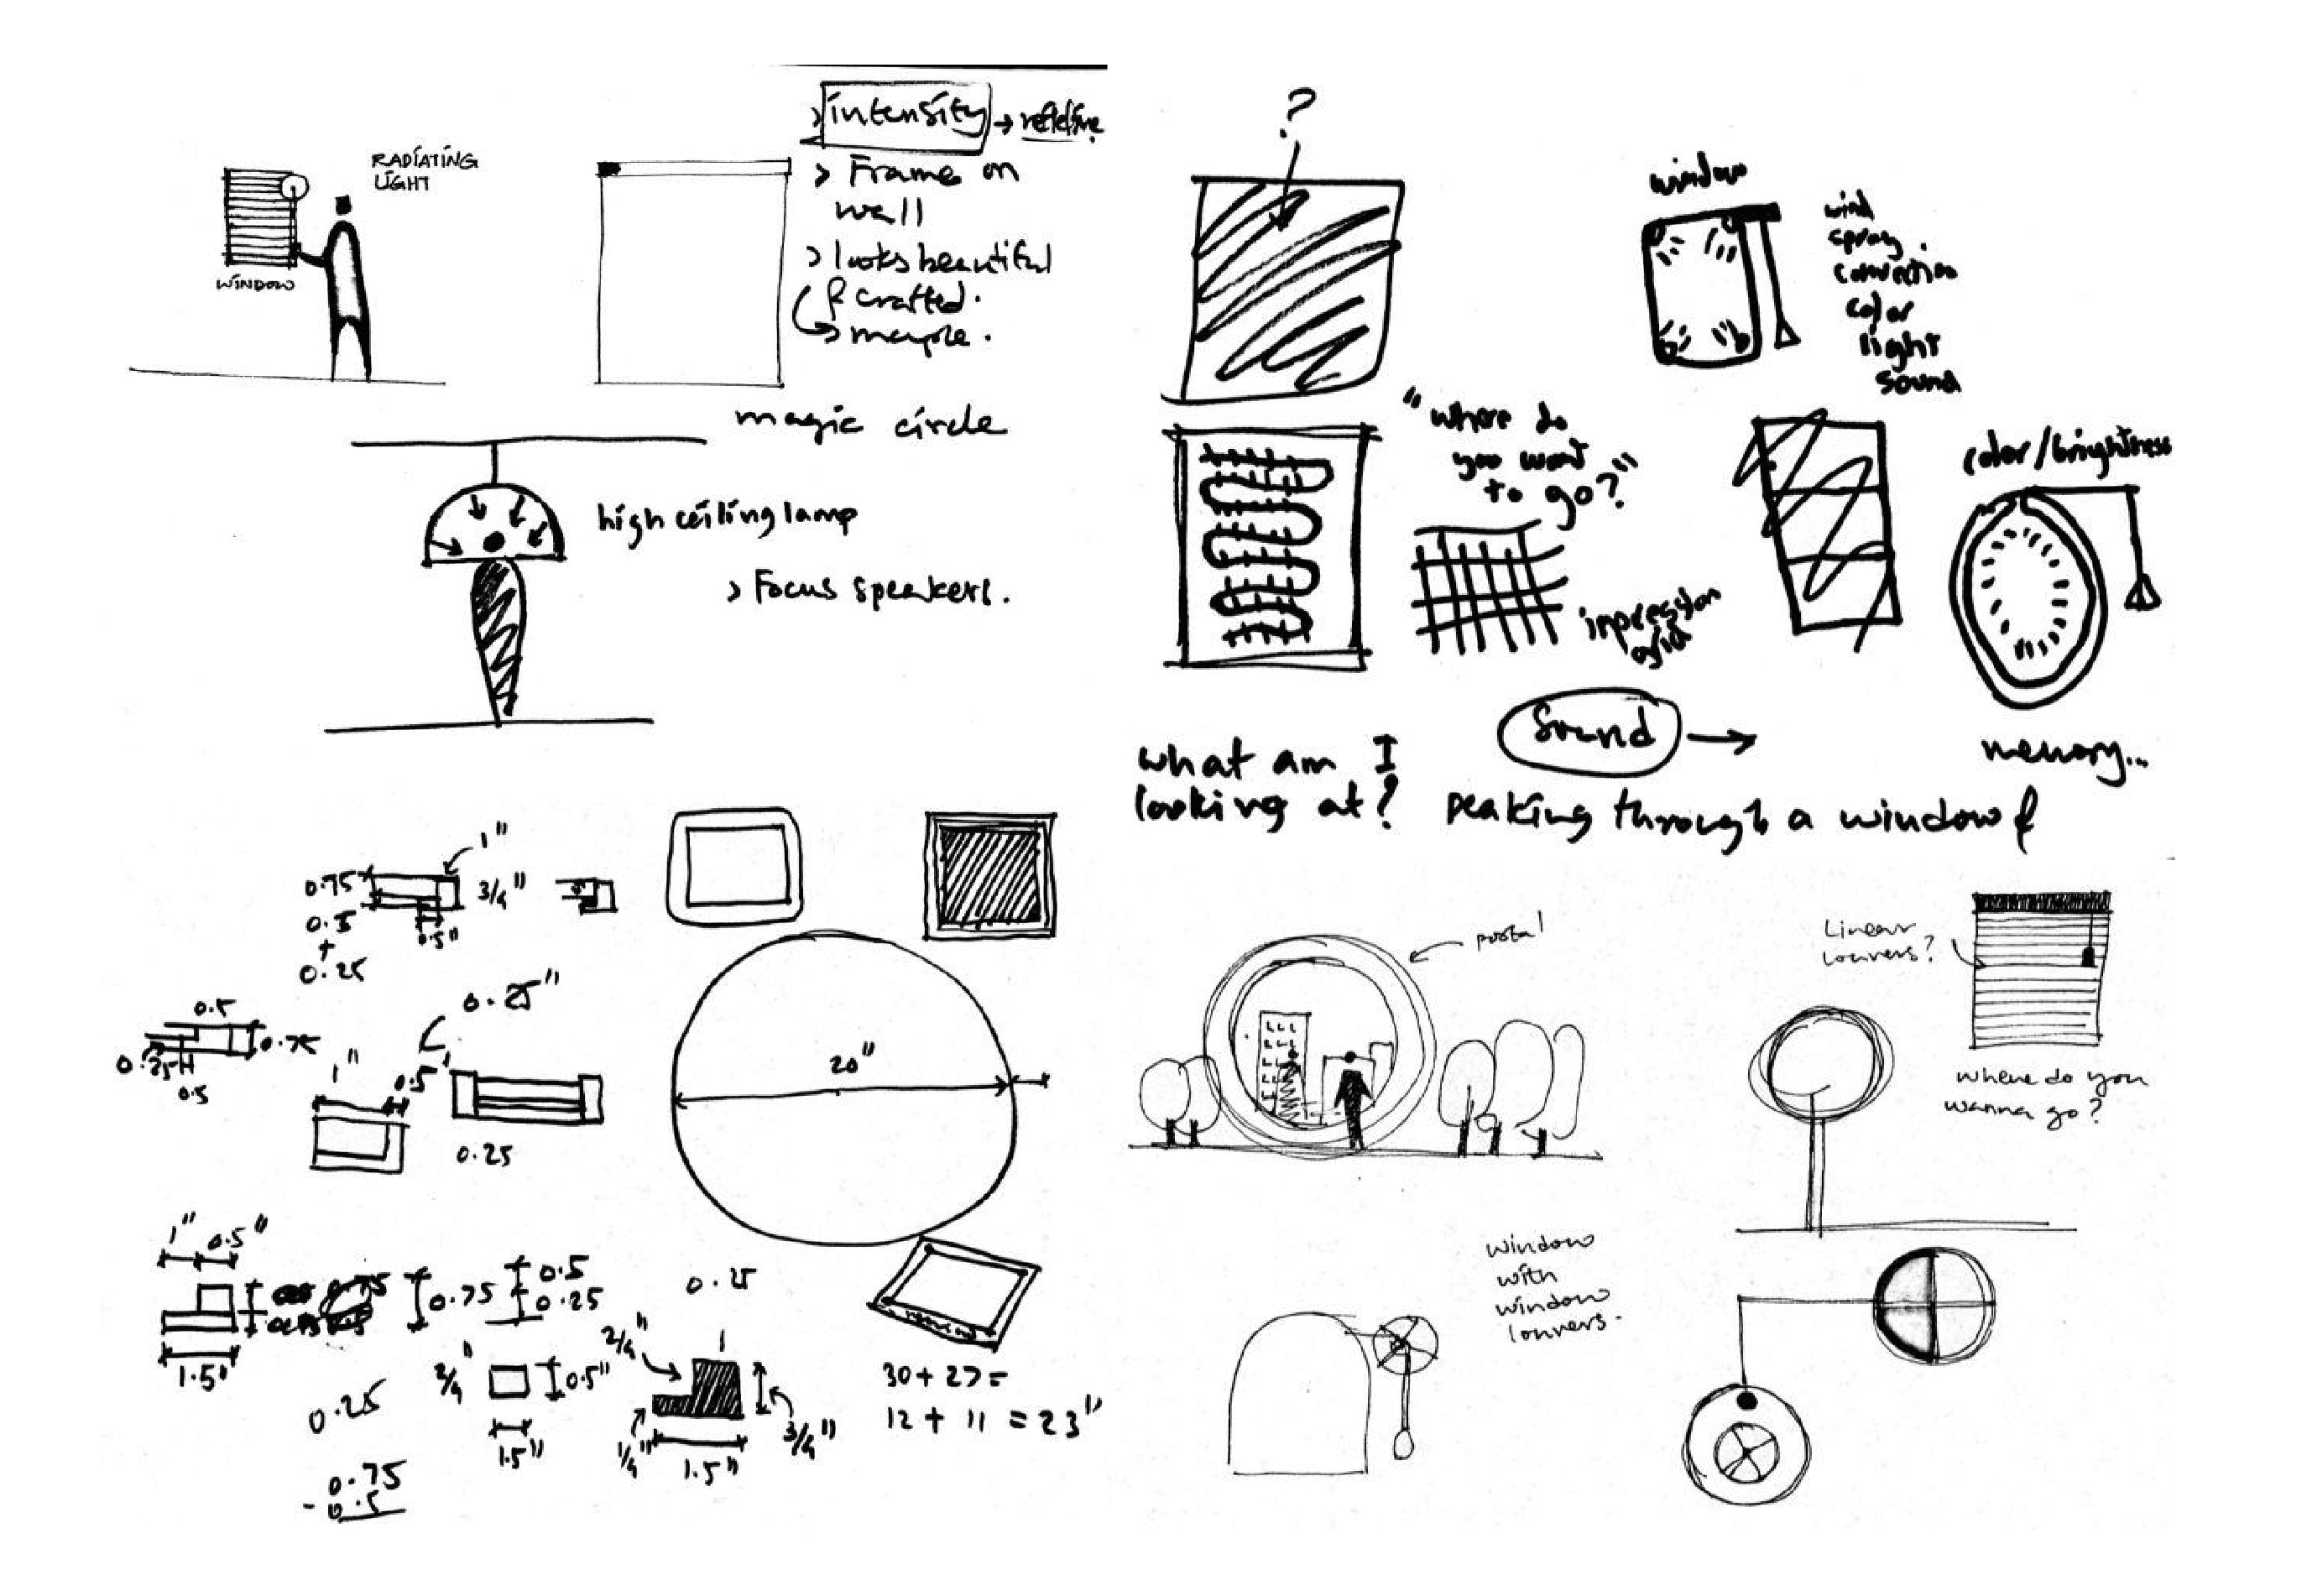 RADIATING
LIGHT
WINDOW
> intensity →
> Frame on
wall
> looks beautiful
& crafted.
magic circle
high ceiling lamp
> Focus speakers.
?
window
wind
spray
color
light
sound
"where do
you want
to go?"
impression
grid
color/brightness
Sound →
memory...
what am I
looking at?
peaking through a window &
1"
0.75
3/4"
0.5
+
0.25
0.5"
0.25"
0.5
0.75
0.5
1"
0.5"
0.25
20"
1" 0.5"
1.5"
0.75
0.5
0.25
0.25
0.5"
1.5"
0.25
0.75
- 0.5
1
1/4"
1.5"
3/4"
30+27=
12 + 11 = 23"
portal
Linear
louvers?
where do you
wanna go?
window
with
window
louvers.